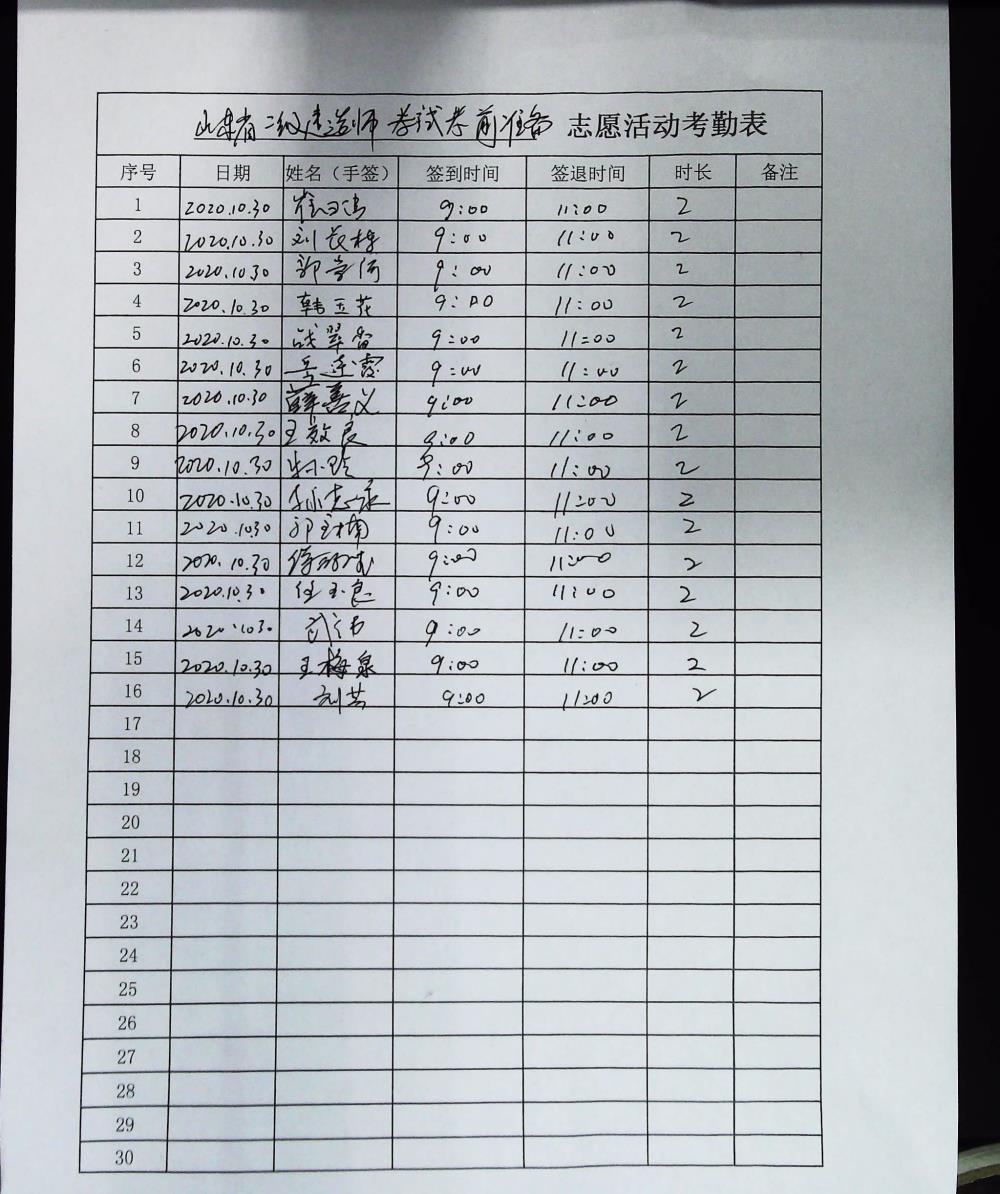 山东省二级建造师考试考前准备 志愿活动考勤表
序号 日期 姓名（手签） 签到时间 签退时间 时长 备注
1 2020.10.30 9:00 11:00 2
2 2020.10.30 刘长梅 9:00 11:00 2
3 2020.10.30 郭 9:00 11:00 2
4 2020.10.30 韩玉花 9:00 11:00 2
5 2020.10.30 战翠香 9:00 11:00 2
6 2020.10.30 岳连霞 9:00 11:00 2
7 2020.10.30 薛嘉义 9:00 11:00 2
8 2020.10.30 王效良 9:00 11:00 2
9 2020.10.30 9:00 11:00 2
10 2020.10.30 孙志永 9:00 11:00 2
11 2020.10.30 郭 楠 9:00 11:00 2
12 2020.10.30 9:00 11:00 2
13 2020.10.30 任玉良 9:00 11:00 2
14 2020.10.30 武伟 9:00 11:00 2
15 2020.10.30 王梅泉 9:00 11:00 2
16 2020.10.30 刘芸 9:00 11:00 2
17
18
19
20
21
22
23
24
25
26
27
28
29
30